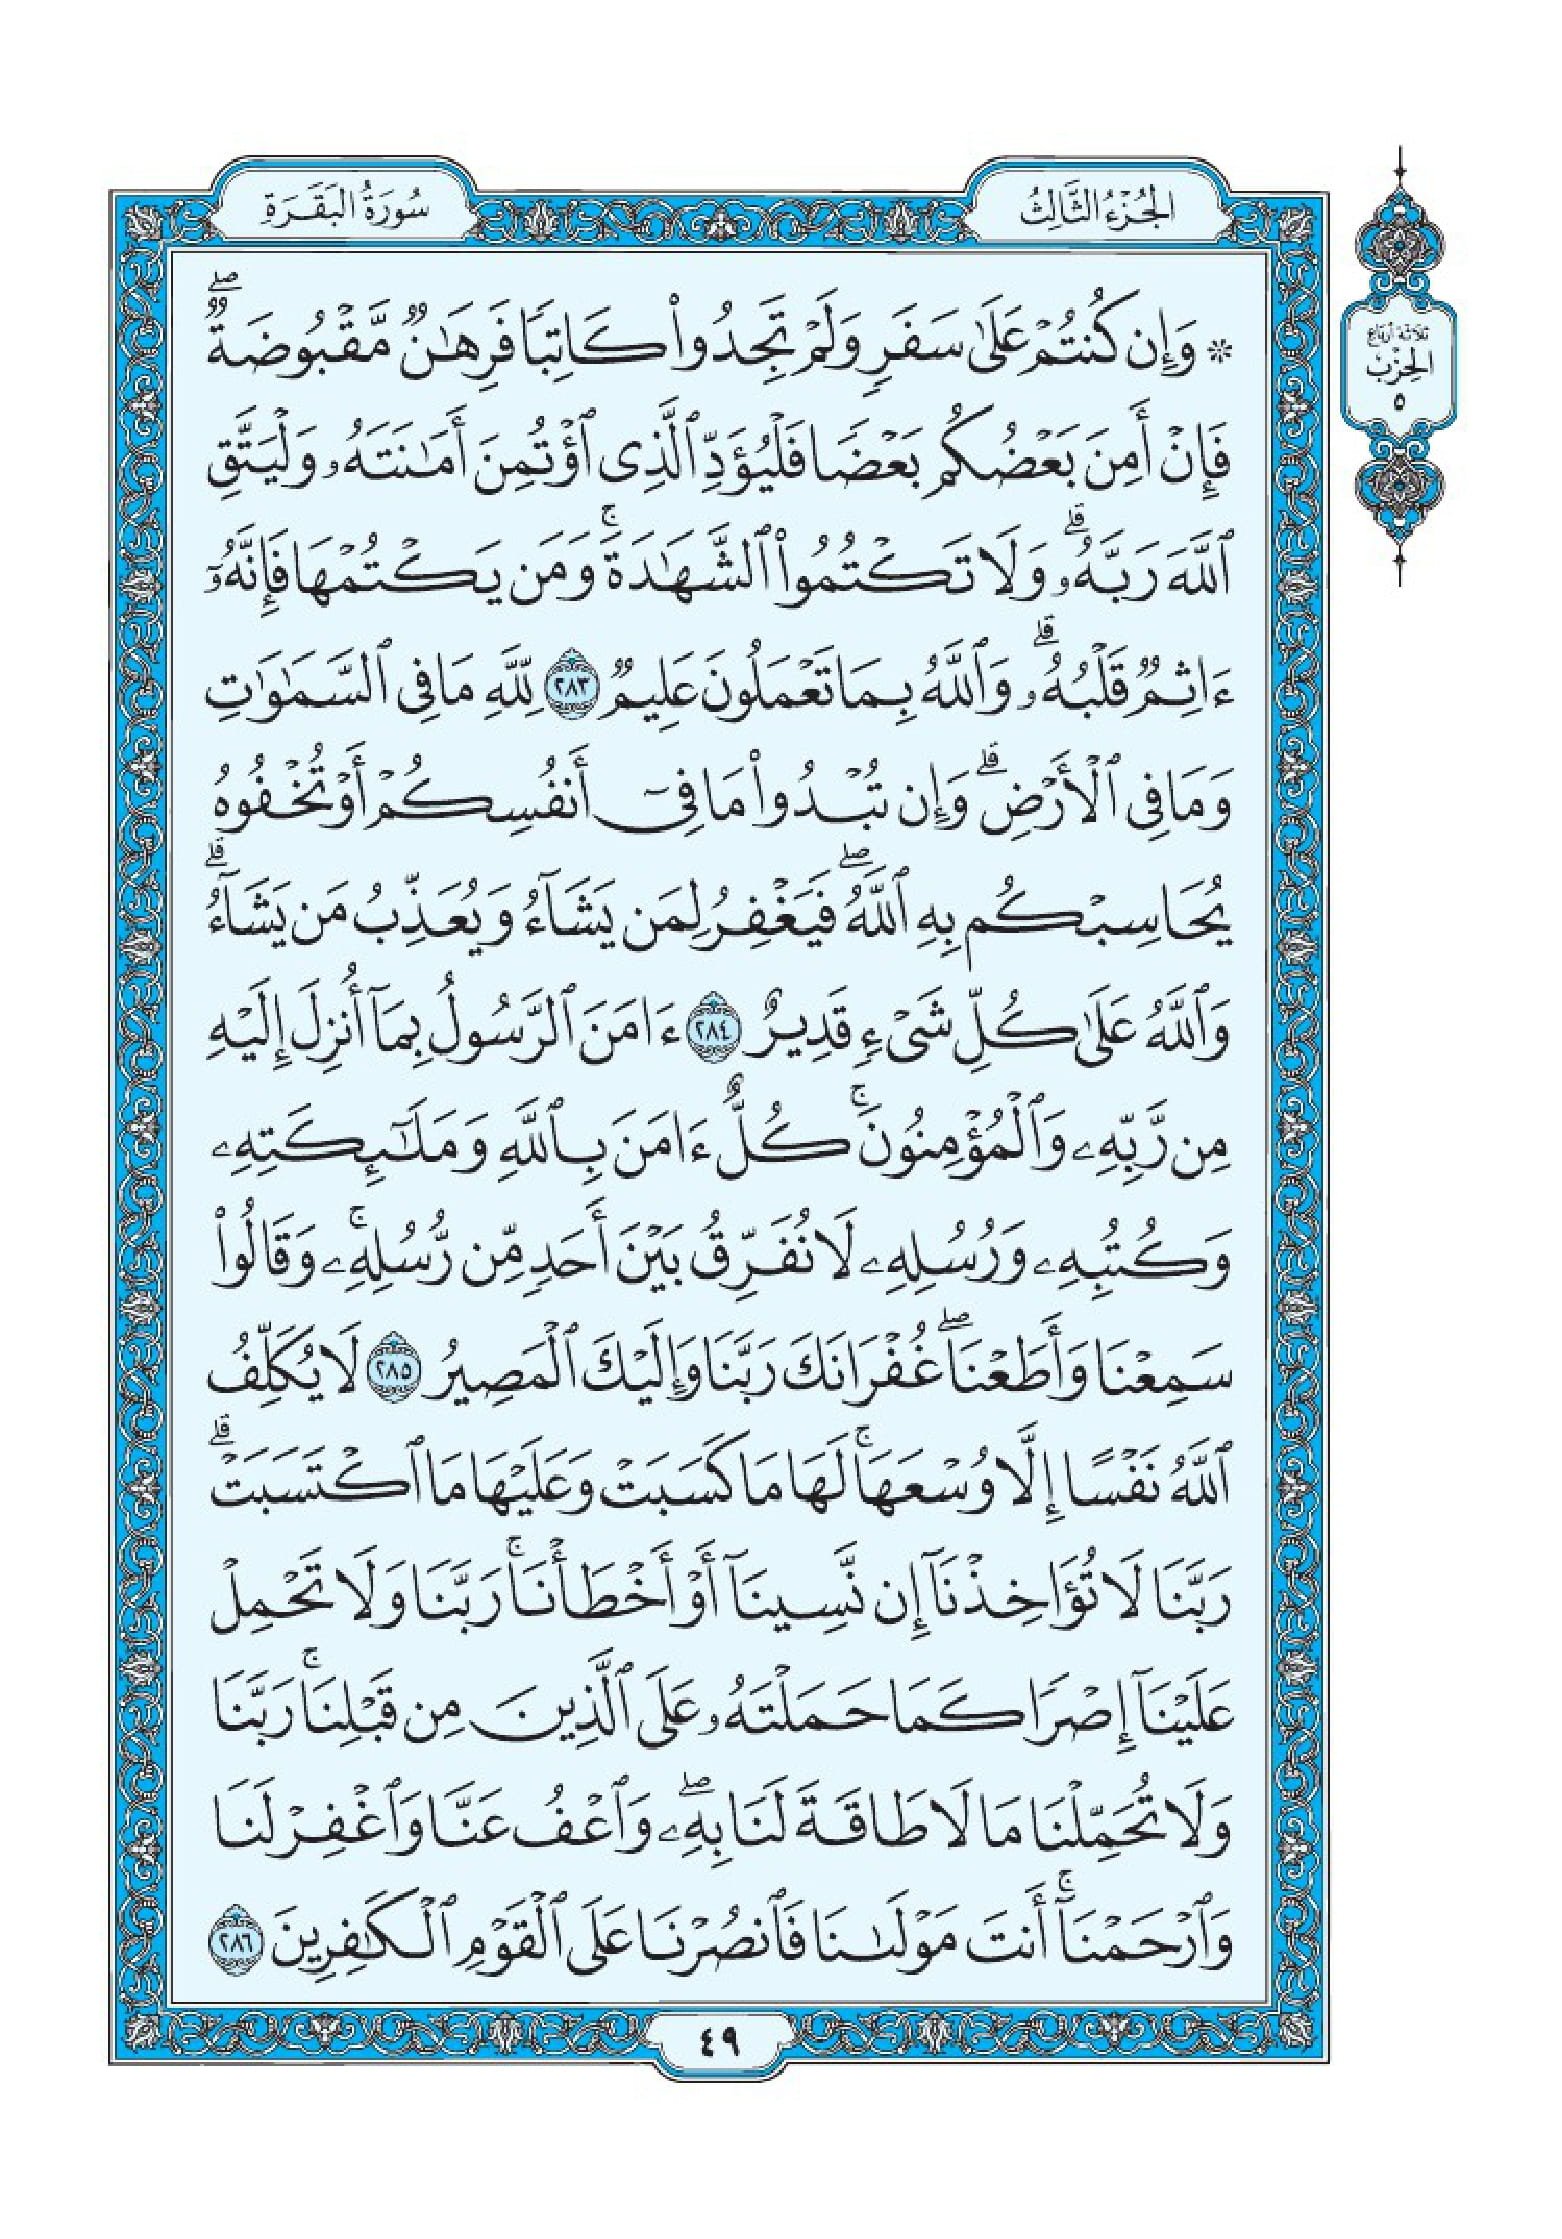 الجُزْءُ الثَّالِثُ
سُورَةُ البَقَرَةِ
ثلاثة أرباع
الحِزْب
٥
۞ وَإِن كُنتُمْ عَلَىٰ سَفَرٍ وَلَمْ تَجِدُوا۟ كَاتِبًا فَرِهَـٰنٌ مَّقْبُوضَةٌ ۖ
فَإِنْ أَمِنَ بَعْضُكُم بَعْضًا فَلْيُؤَدِّ ٱلَّذِى ٱؤْتُمِنَ أَمَـٰنَتَهُۥ وَلْيَتَّقِ
ٱللَّهَ رَبَّهُۥ ۗ وَلَا تَكْتُمُوا۟ ٱلشَّهَـٰدَةَ ۚ وَمَن يَكْتُمْهَا فَإِنَّهُۥٓ
ءَاثِمٌ قَلْبُهُۥ ۗ وَٱللَّهُ بِمَا تَعْمَلُونَ عَلِيمٌ ٢٨٣ لِّلَّهِ مَا فِى ٱلسَّمَـٰوَٰتِ
وَمَا فِى ٱلْأَرْضِ ۗ وَإِن تُبْدُوا۟ مَا فِىٓ أَنفُسِكُمْ أَوْ تُخْفُوهُ
يُحَاسِبْكُم بِهِ ٱللَّهُ ۖ فَيَغْفِرُ لِمَن يَشَآءُ وَيُعَذِّبُ مَن يَشَآءُ ۗ
وَٱللَّهُ عَلَىٰ كُلِّ شَىْءٍ قَدِيرٌ ٢٨٤ ءَامَنَ ٱلرَّسُولُ بِمَآ أُنزِلَ إِلَيْهِ
مِن رَّبِّهِۦ وَٱلْمُؤْمِنُونَ ۚ كُلٌّ ءَامَنَ بِٱللَّهِ وَمَلَـٰٓئِكَتِهِۦ
وَكُتُبِهِۦ وَرُسُلِهِۦ لَا نُفَرِّقُ بَيْنَ أَحَدٍ مِّن رُّسُلِهِۦ ۚ وَقَالُوا۟
سَمِعْنَا وَأَطَعْنَا ۖ غُفْرَانَكَ رَبَّنَا وَإِلَيْكَ ٱلْمَصِيرُ ٢٨٥ لَا يُكَلِّفُ
ٱللَّهُ نَفْسًا إِلَّا وُسْعَهَا ۚ لَهَا مَا كَسَبَتْ وَعَلَيْهَا مَا ٱكْتَسَبَتْ ۗ
رَبَّنَا لَا تُؤَاخِذْنَآ إِن نَّسِينَآ أَوْ أَخْطَأْنَا ۚ رَبَّنَا وَلَا تَحْمِلْ
عَلَيْنَآ إِصْرًا كَمَا حَمَلْتَهُۥ عَلَى ٱلَّذِينَ مِن قَبْلِنَا ۚ رَبَّنَا
وَلَا تُحَمِّلْنَا مَا لَا طَاقَةَ لَنَا بِهِۦ ۖ وَٱعْفُ عَنَّا وَٱغْفِرْ لَنَا
وَٱرْحَمْنَآ ۚ أَنتَ مَوْلَىٰنَا فَٱنصُرْنَا عَلَى ٱلْقَوْمِ ٱلْكَـٰفِرِينَ ٢٨٦
٤٩